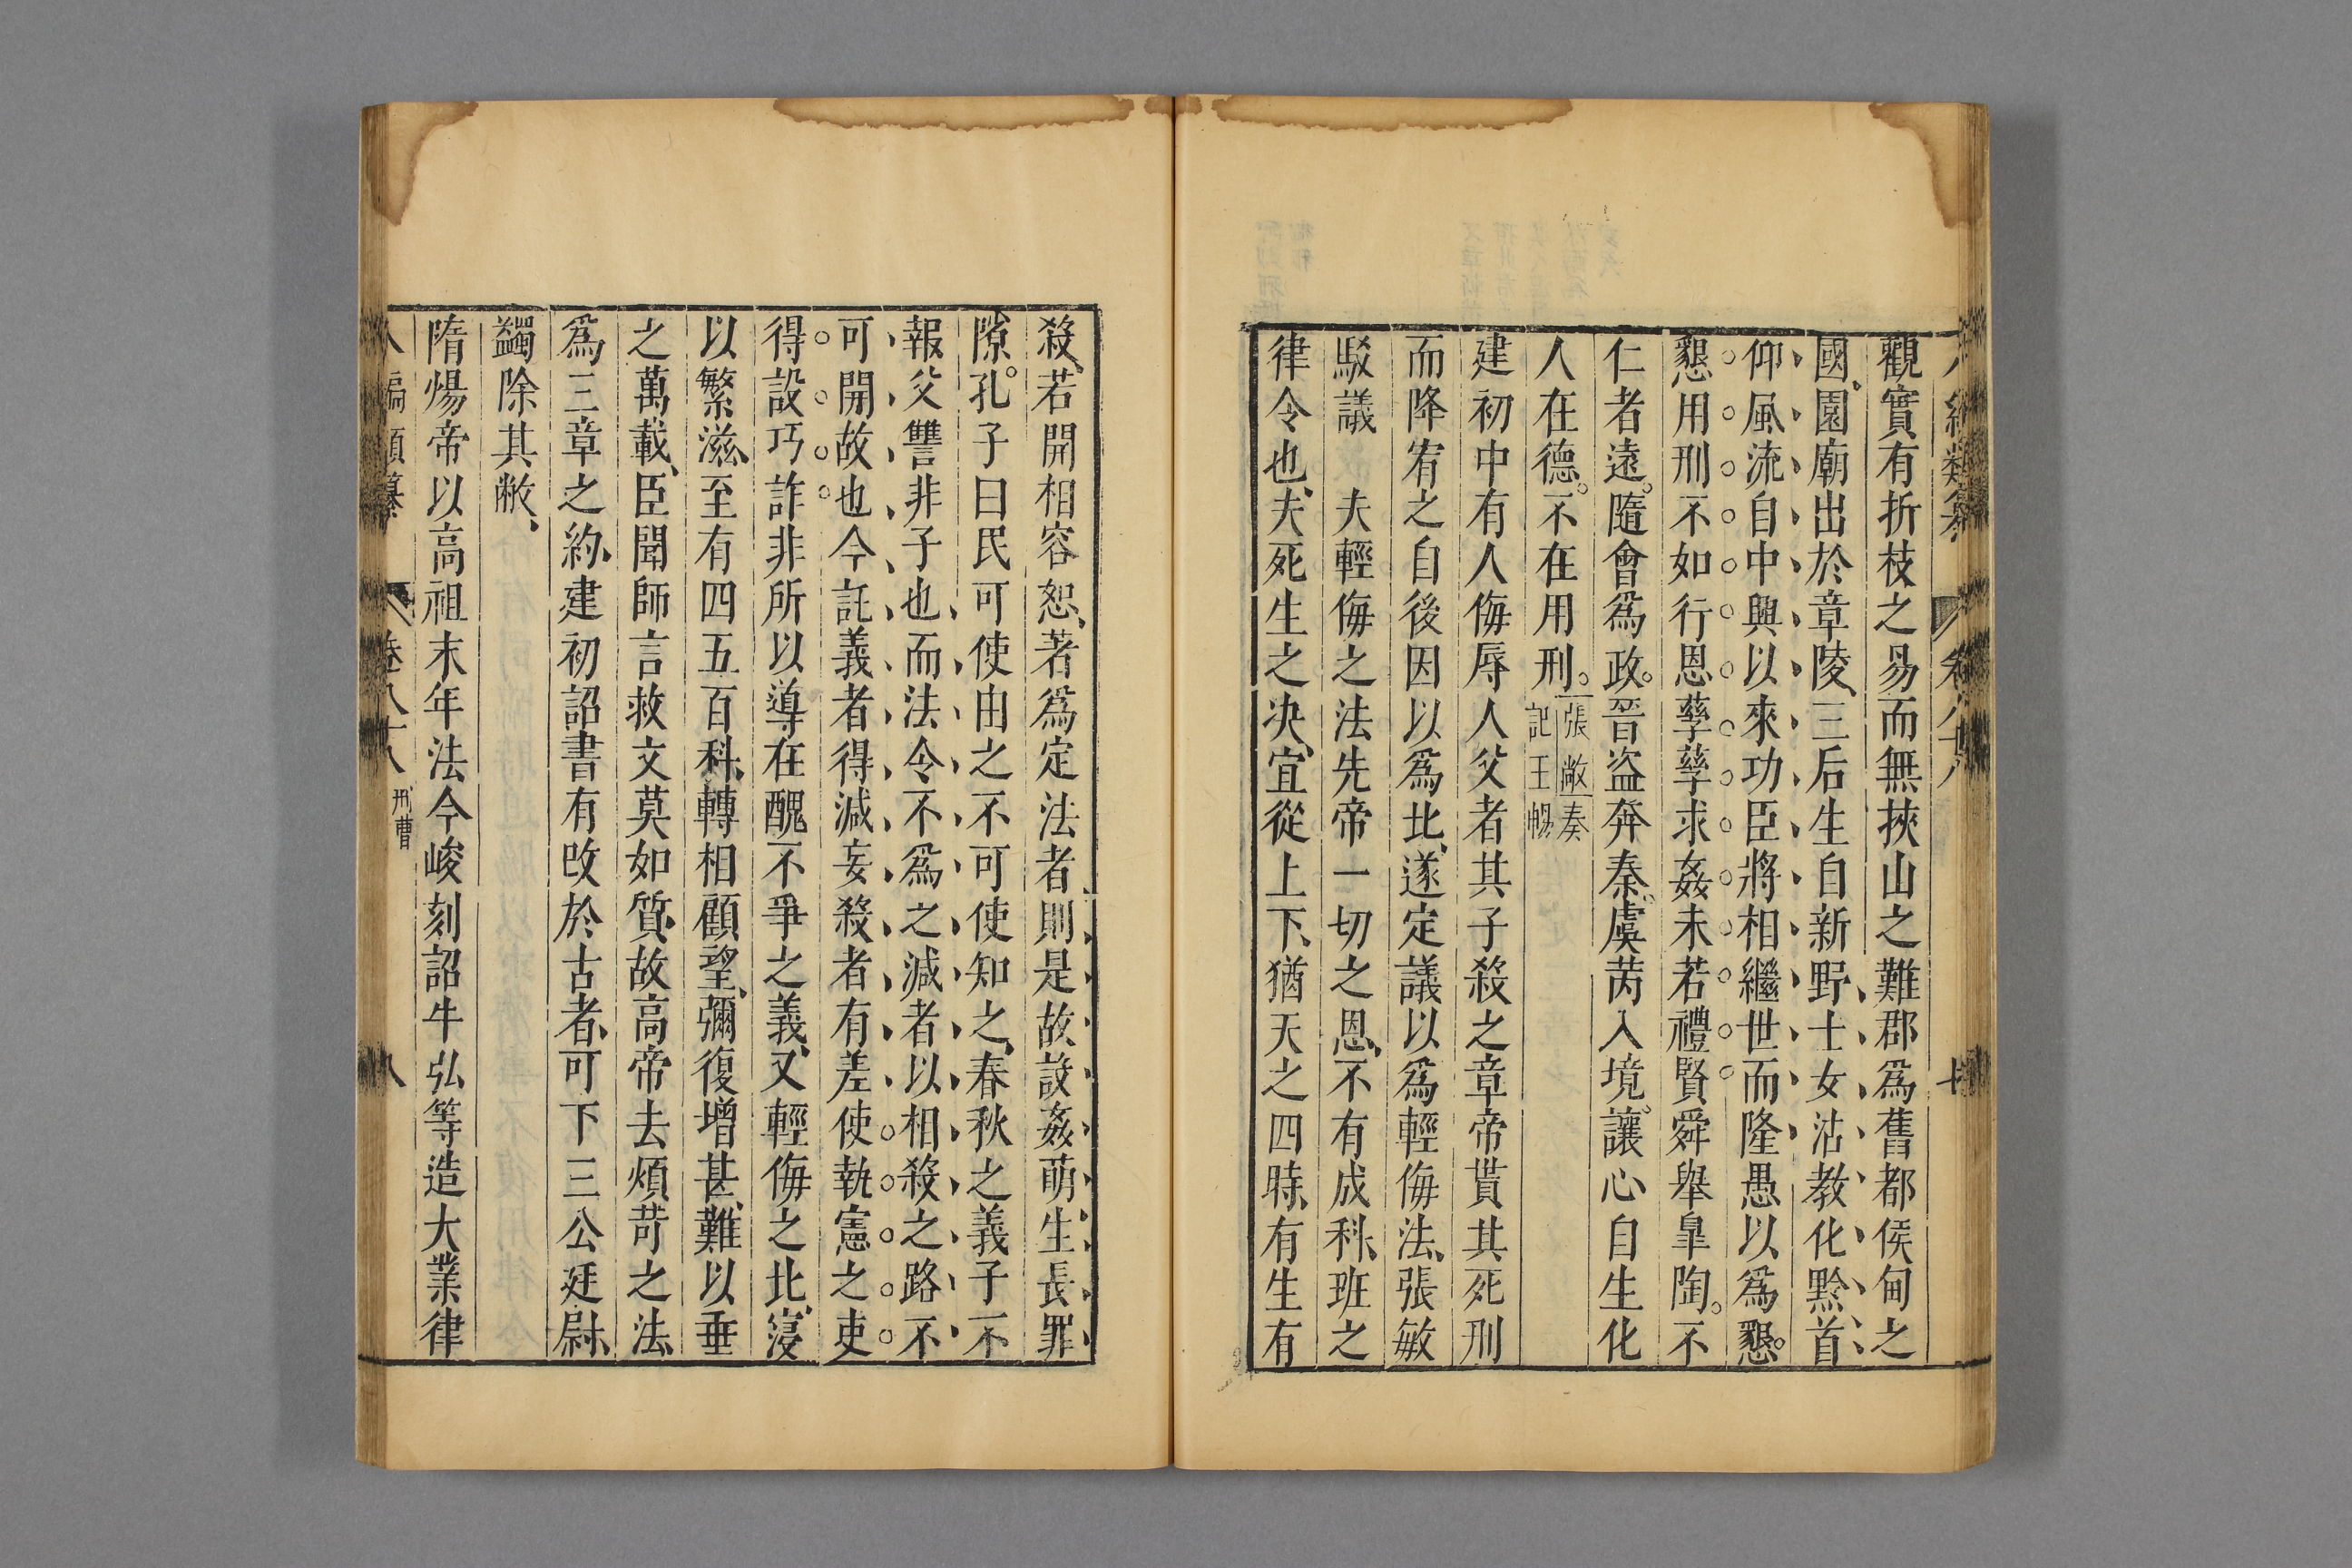 八編類纂 卷八十八 七
觀實有折枝之易而無挾山之難郡爲舊都侯甸之
國園廟出於章陵三后生自新野士女沾教化黔首
仰風流自中興以來功臣將相繼世而隆愚以爲懇
懇用刑不如行恩孳孳求姦未若禮賢舜舉臯陶不
仁者遠隨會爲政晉盜奔秦虞芮入境讓心自生化
人在德不在用刑張敞奏記王暢
建初中有人侮辱人父者其子殺之章帝貰其死刑
而降宥之自後因以爲比遂定議以爲輕侮法張敏
駁議 夫輕侮之法先帝一切之恩不有成科班之
律令也夫死生之决宜從上下猶天之四時有生有
殺若開相容恕著爲定法者則是故設姦萌生長罪
隙孔子曰民可使由之不可使知之春秋之義子不
報父讐非子也而法令不爲之減者以相殺之路不
可開故也今託義者得減妄殺者有差使執憲之吏
得設巧詐非所以導在醜不爭之義又輕侮之比寖
以繁滋至有四五百科轉相顧望彌復增甚難以垂
之萬載臣聞師言救文莫如質故高帝去煩苛之法
爲三章之約建初詔書有改於古者可下三公廷尉
蠲除其敝
隋煬帝以高祖末年法令峻刻詔牛弘等造大業律
八編類纂 卷八十八 刑曹 八